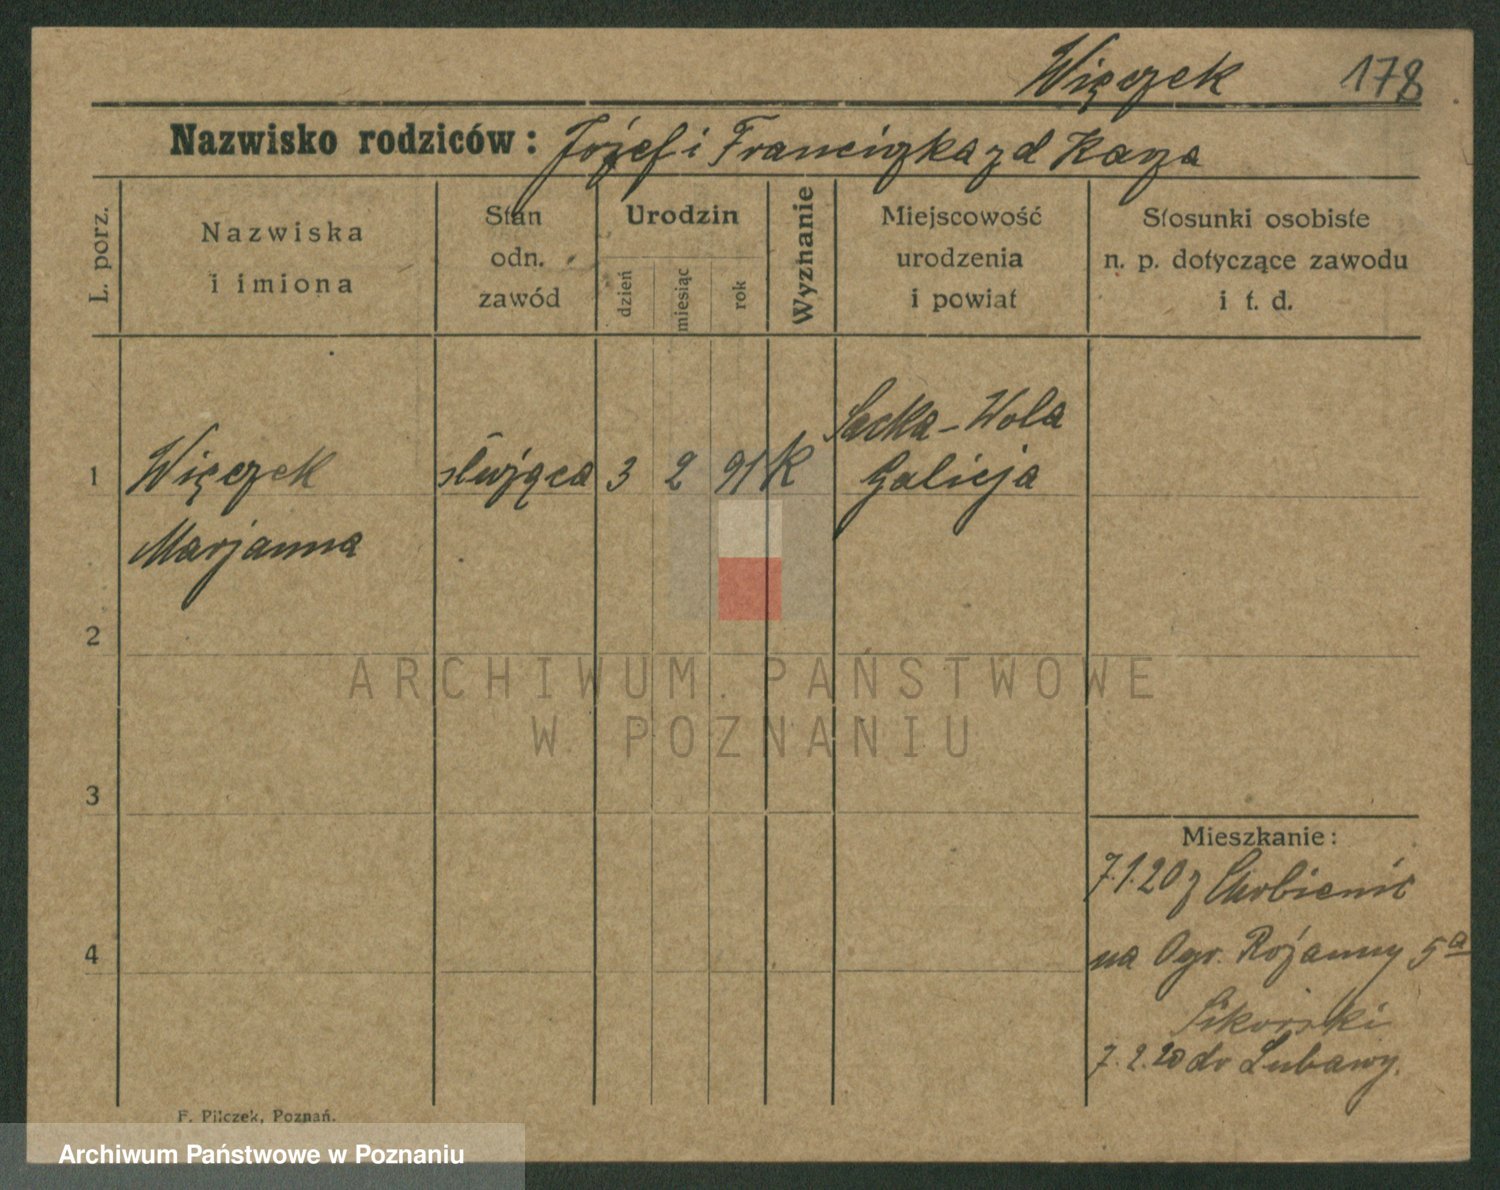 Więczek 178
Nazwisko rodziców: Józef i Franciszka zd Kasza
L. porz.
Nazwiska
i imiona
Stan
odn.
zawód
Urodzin
dzień
miesiąc
rok
Wyznanie
Miejscowość
urodzenia
i powiat
Stosunki osobiste
n. p. dotyczące zawodu
i t. d.
1 Więczek służąca 3 2 91 K
Wola
Galicja
Marjanna
2
3
4
Mieszkanie:
7.1.20 z Chobienic
na Ogr. 5a
Sikorski
7.2.20 do Lubawy.
F. Pilczek, Poznań.
ARCHIWUM PAŃSTWOWE
W POZNANIU
Archiwum Państwowe w Poznaniu